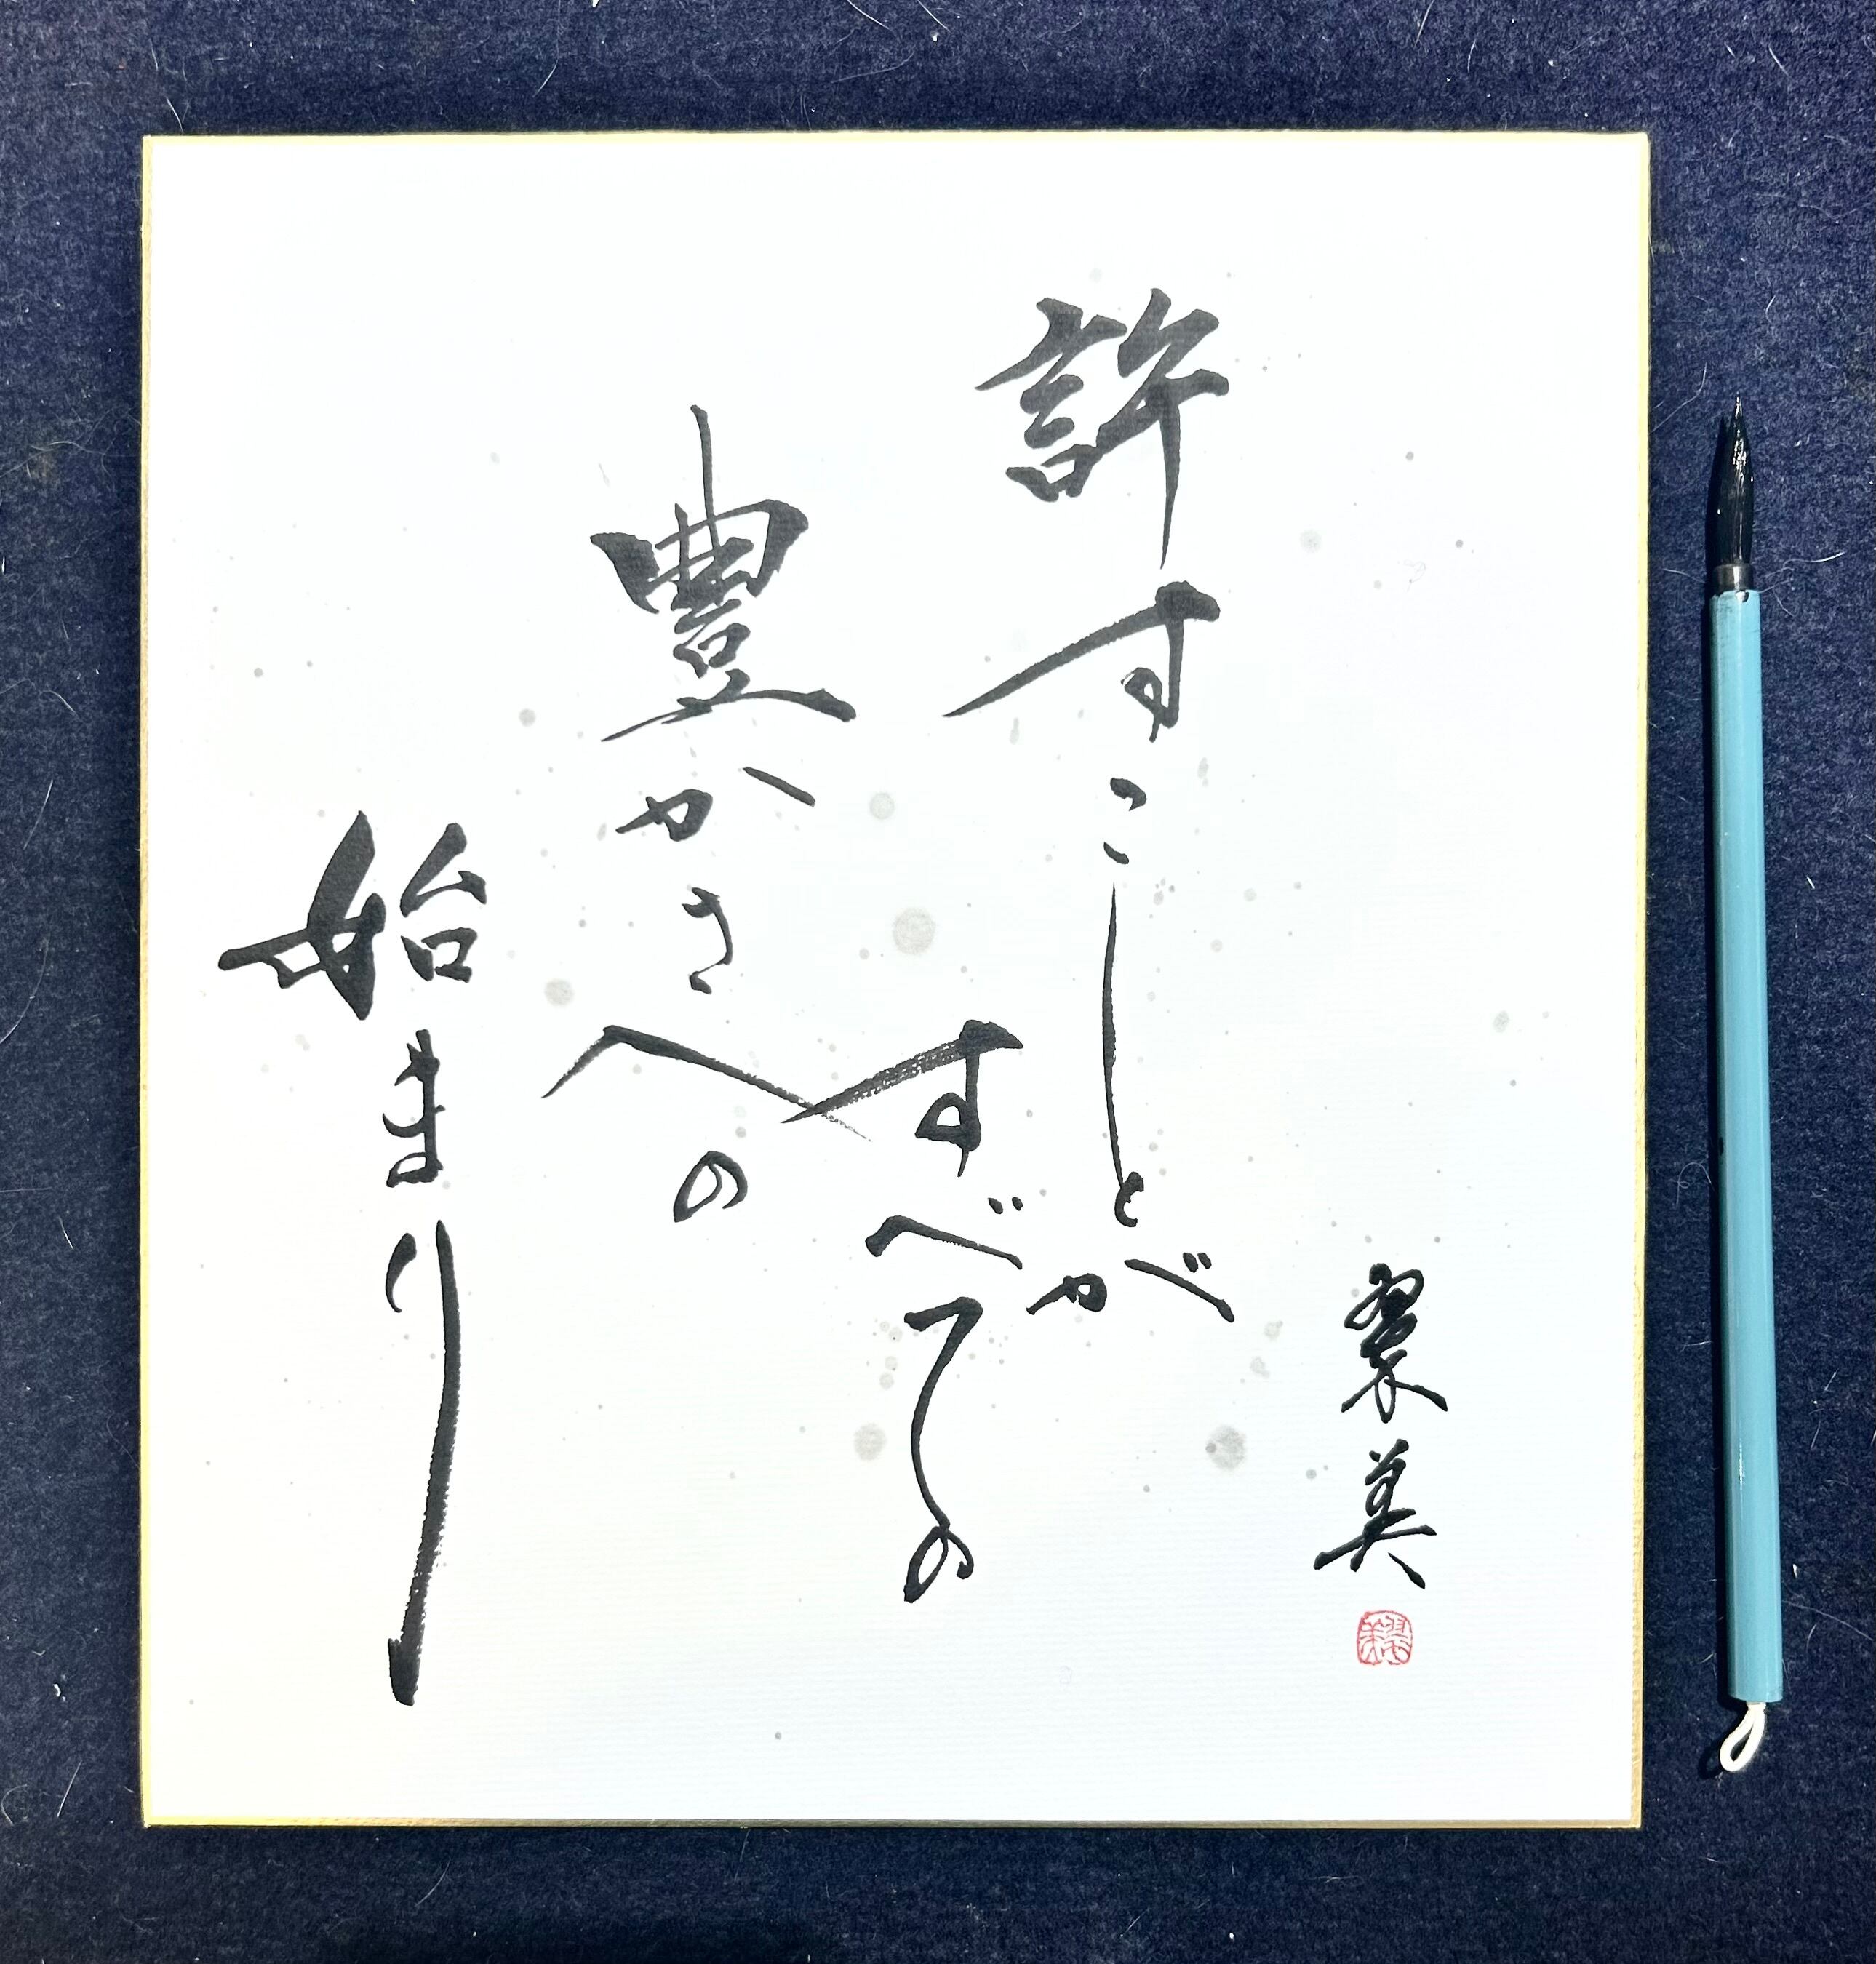 許すことが
すべての
豊かさへの
始まり
翠美